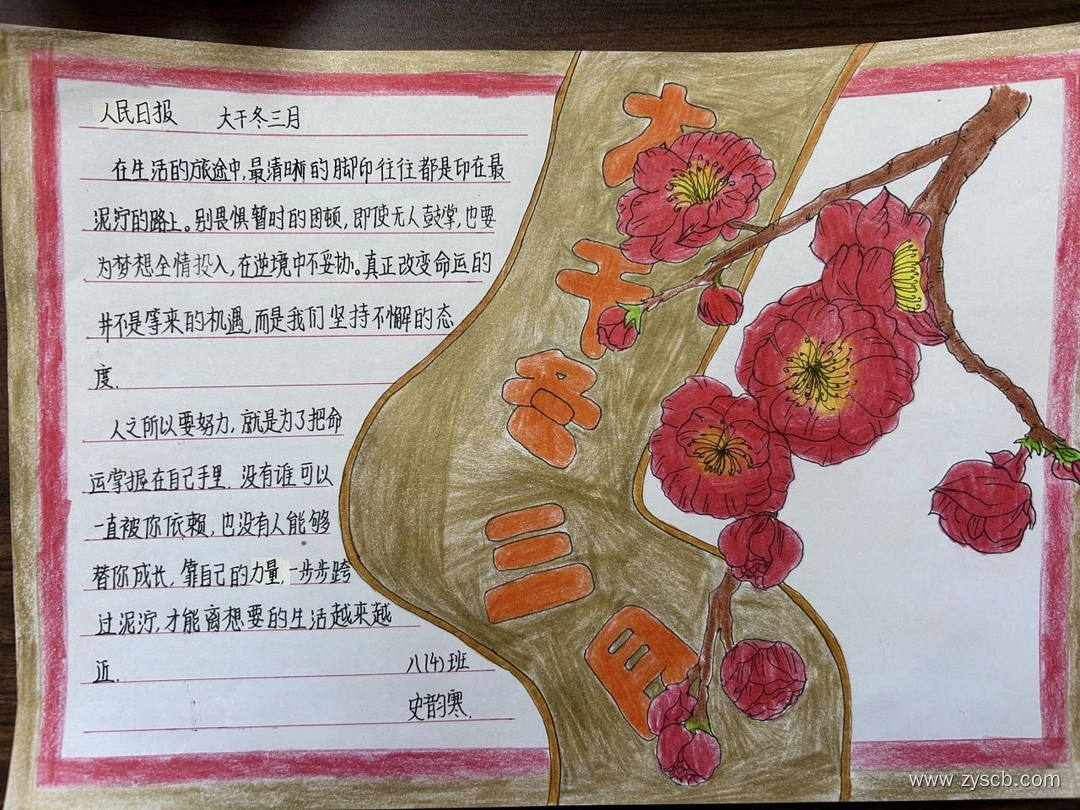 人民日报 大干冬三月
在生活的旅途中,最清晰的脚印往往都是印在最
泥泞的路上。别畏惧暂时的困顿,即使无人鼓掌,也要
为梦想全情投入,在逆境中不妥协。真正改变命运的
并不是等来的机遇,而是我们坚持不懈的态
度.
人之所以要努力,就是为了把命
运掌握在自己手里.没有谁可以
一直被你依赖,也没有人能够
替你成长,靠自己的力量,一步步跨
过泥泞,才能离想要的生活越来越
近.
八(4)班
史韵寒.
大干冬三月
www.zyscb.com